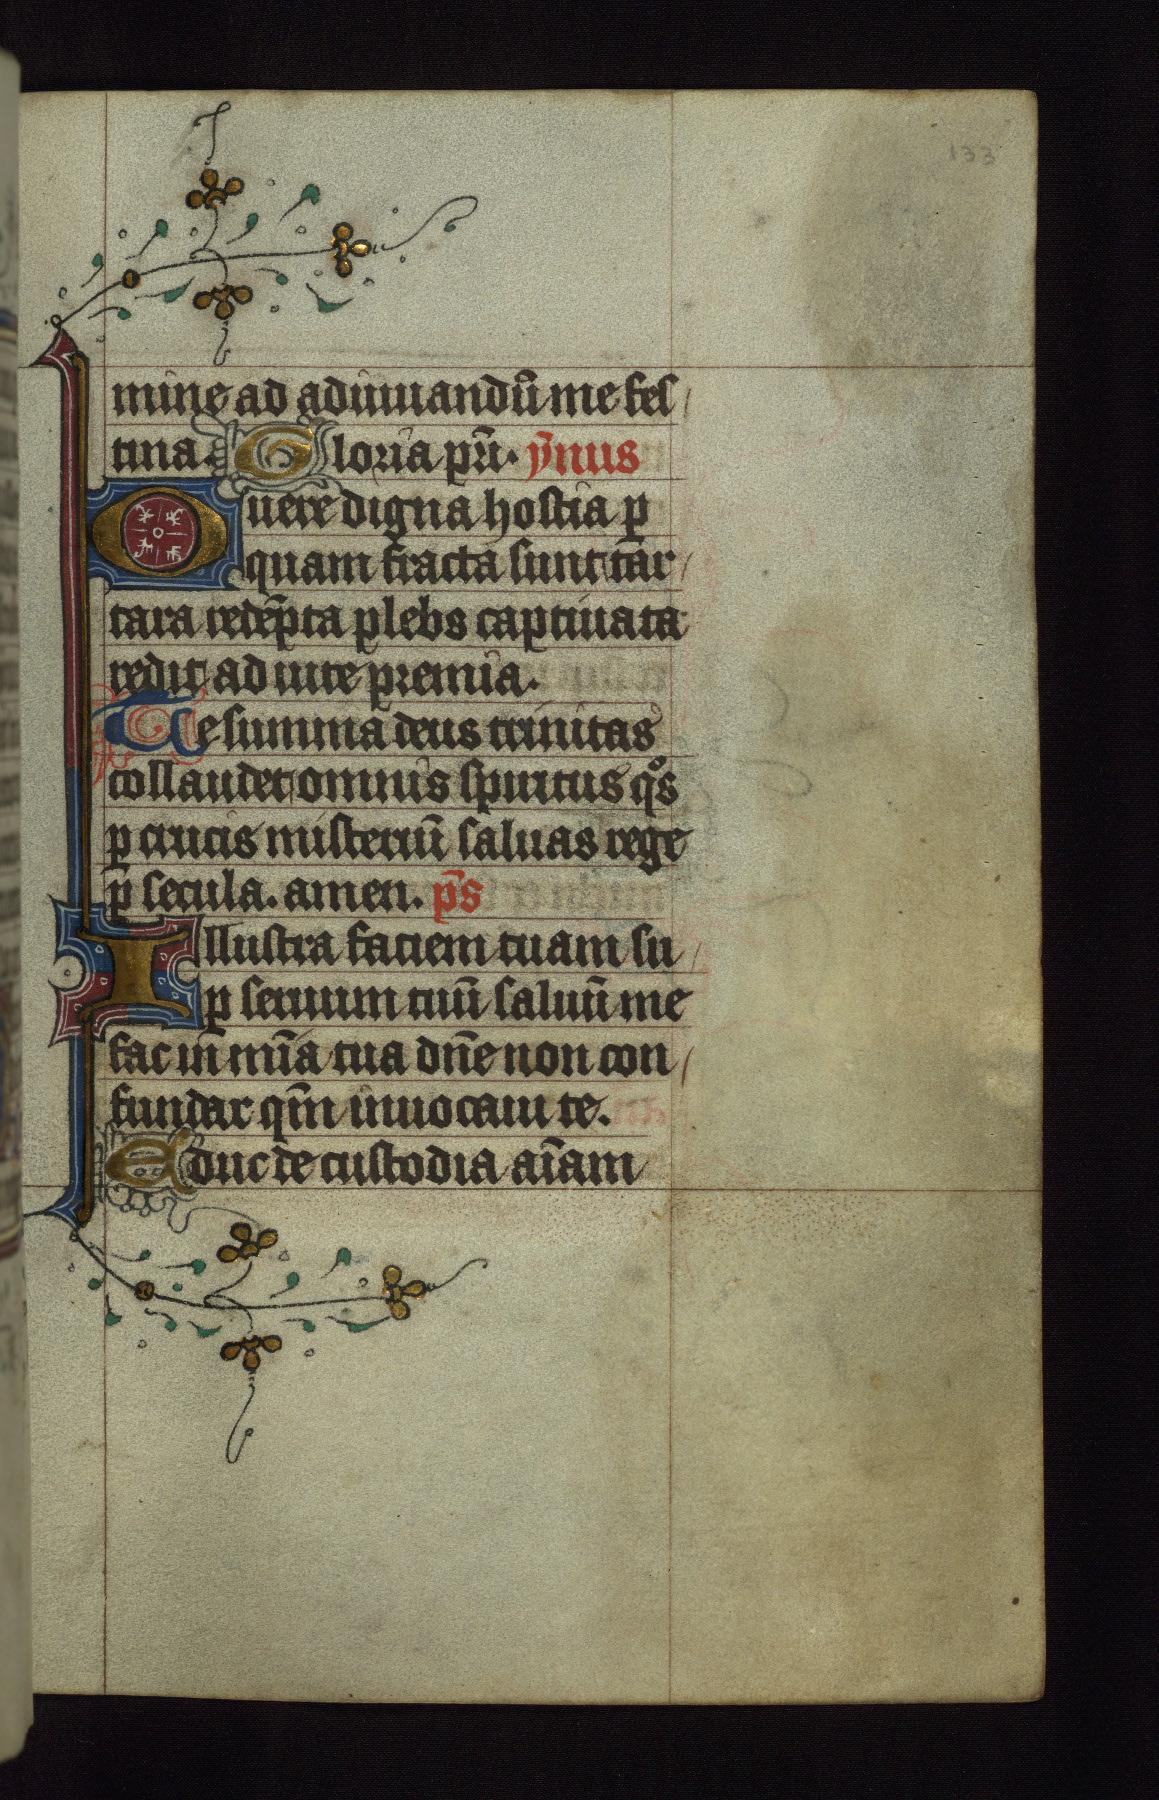 133
mine ad adiuuandū me fes
tina. Gloria pr̄i. ȳnus
O uere digna hostia ꝑ
quam fracta sunt tar
tara redēpta plebs captiuata
redit ad uite premia.
Te summa deus trinitas
collaudet omnis spiritus qͦs
ꝑ crucis misteriū saluas rege
ꝑ secula. amen. p̄s
Illustra faciem tuam su
ꝑ seruum tuū saluū me
fac in mīa tua dn̄e non con
fundar qm̄ inuocaui te.
Educ de custodia aīam